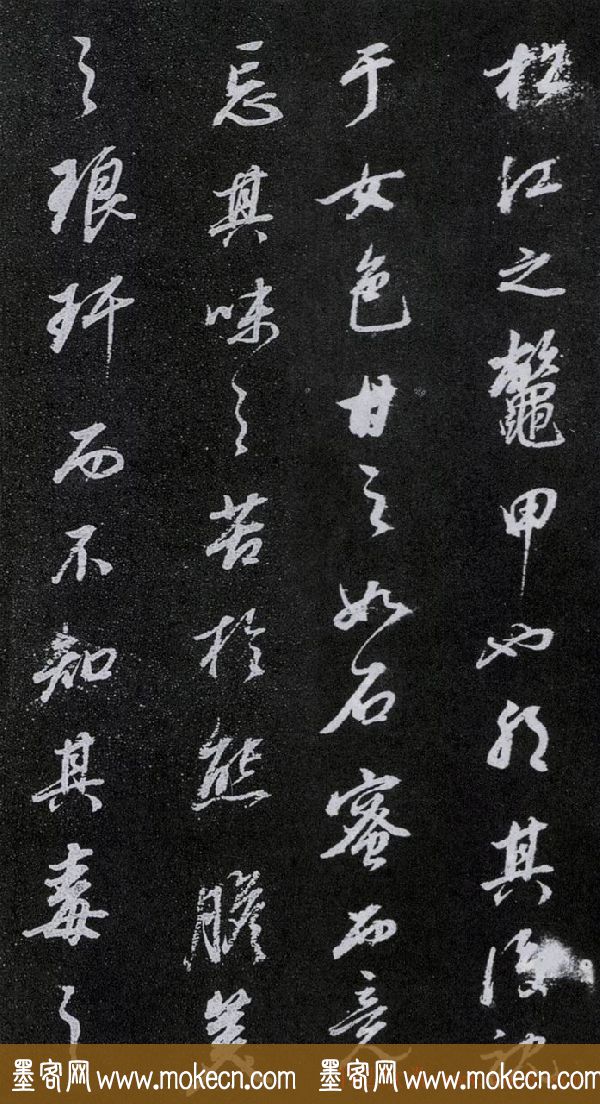 松江之鼈甲也朔其后
于女色甘之如石蜜而竟
忘其味之苦於熊膽美
之琅玕而不知其毒之
墨客网 www.mokecn.com 墨客网 www.mokecn.com